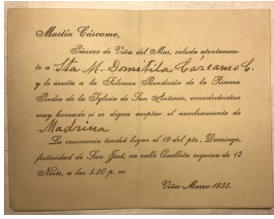 Martín Cárcamo,
Párroco de Viña del Mar, saluda atentamen-
te a Sta M. Domitila Cárcamo C.
y le invita a la Solemne Bendición de la Primera
Piedra de la Iglesia de San Antonio, considerándose
muy honrado si se digna aceptar el nombramiento de
Madrina
La ceremonia tendrá lugar el 19 del pte, Domingo,
festividad de San José, en calle Quillota esquina de 12
Norte, a las 5.30 p. m.
Viña-Marzo-1933.